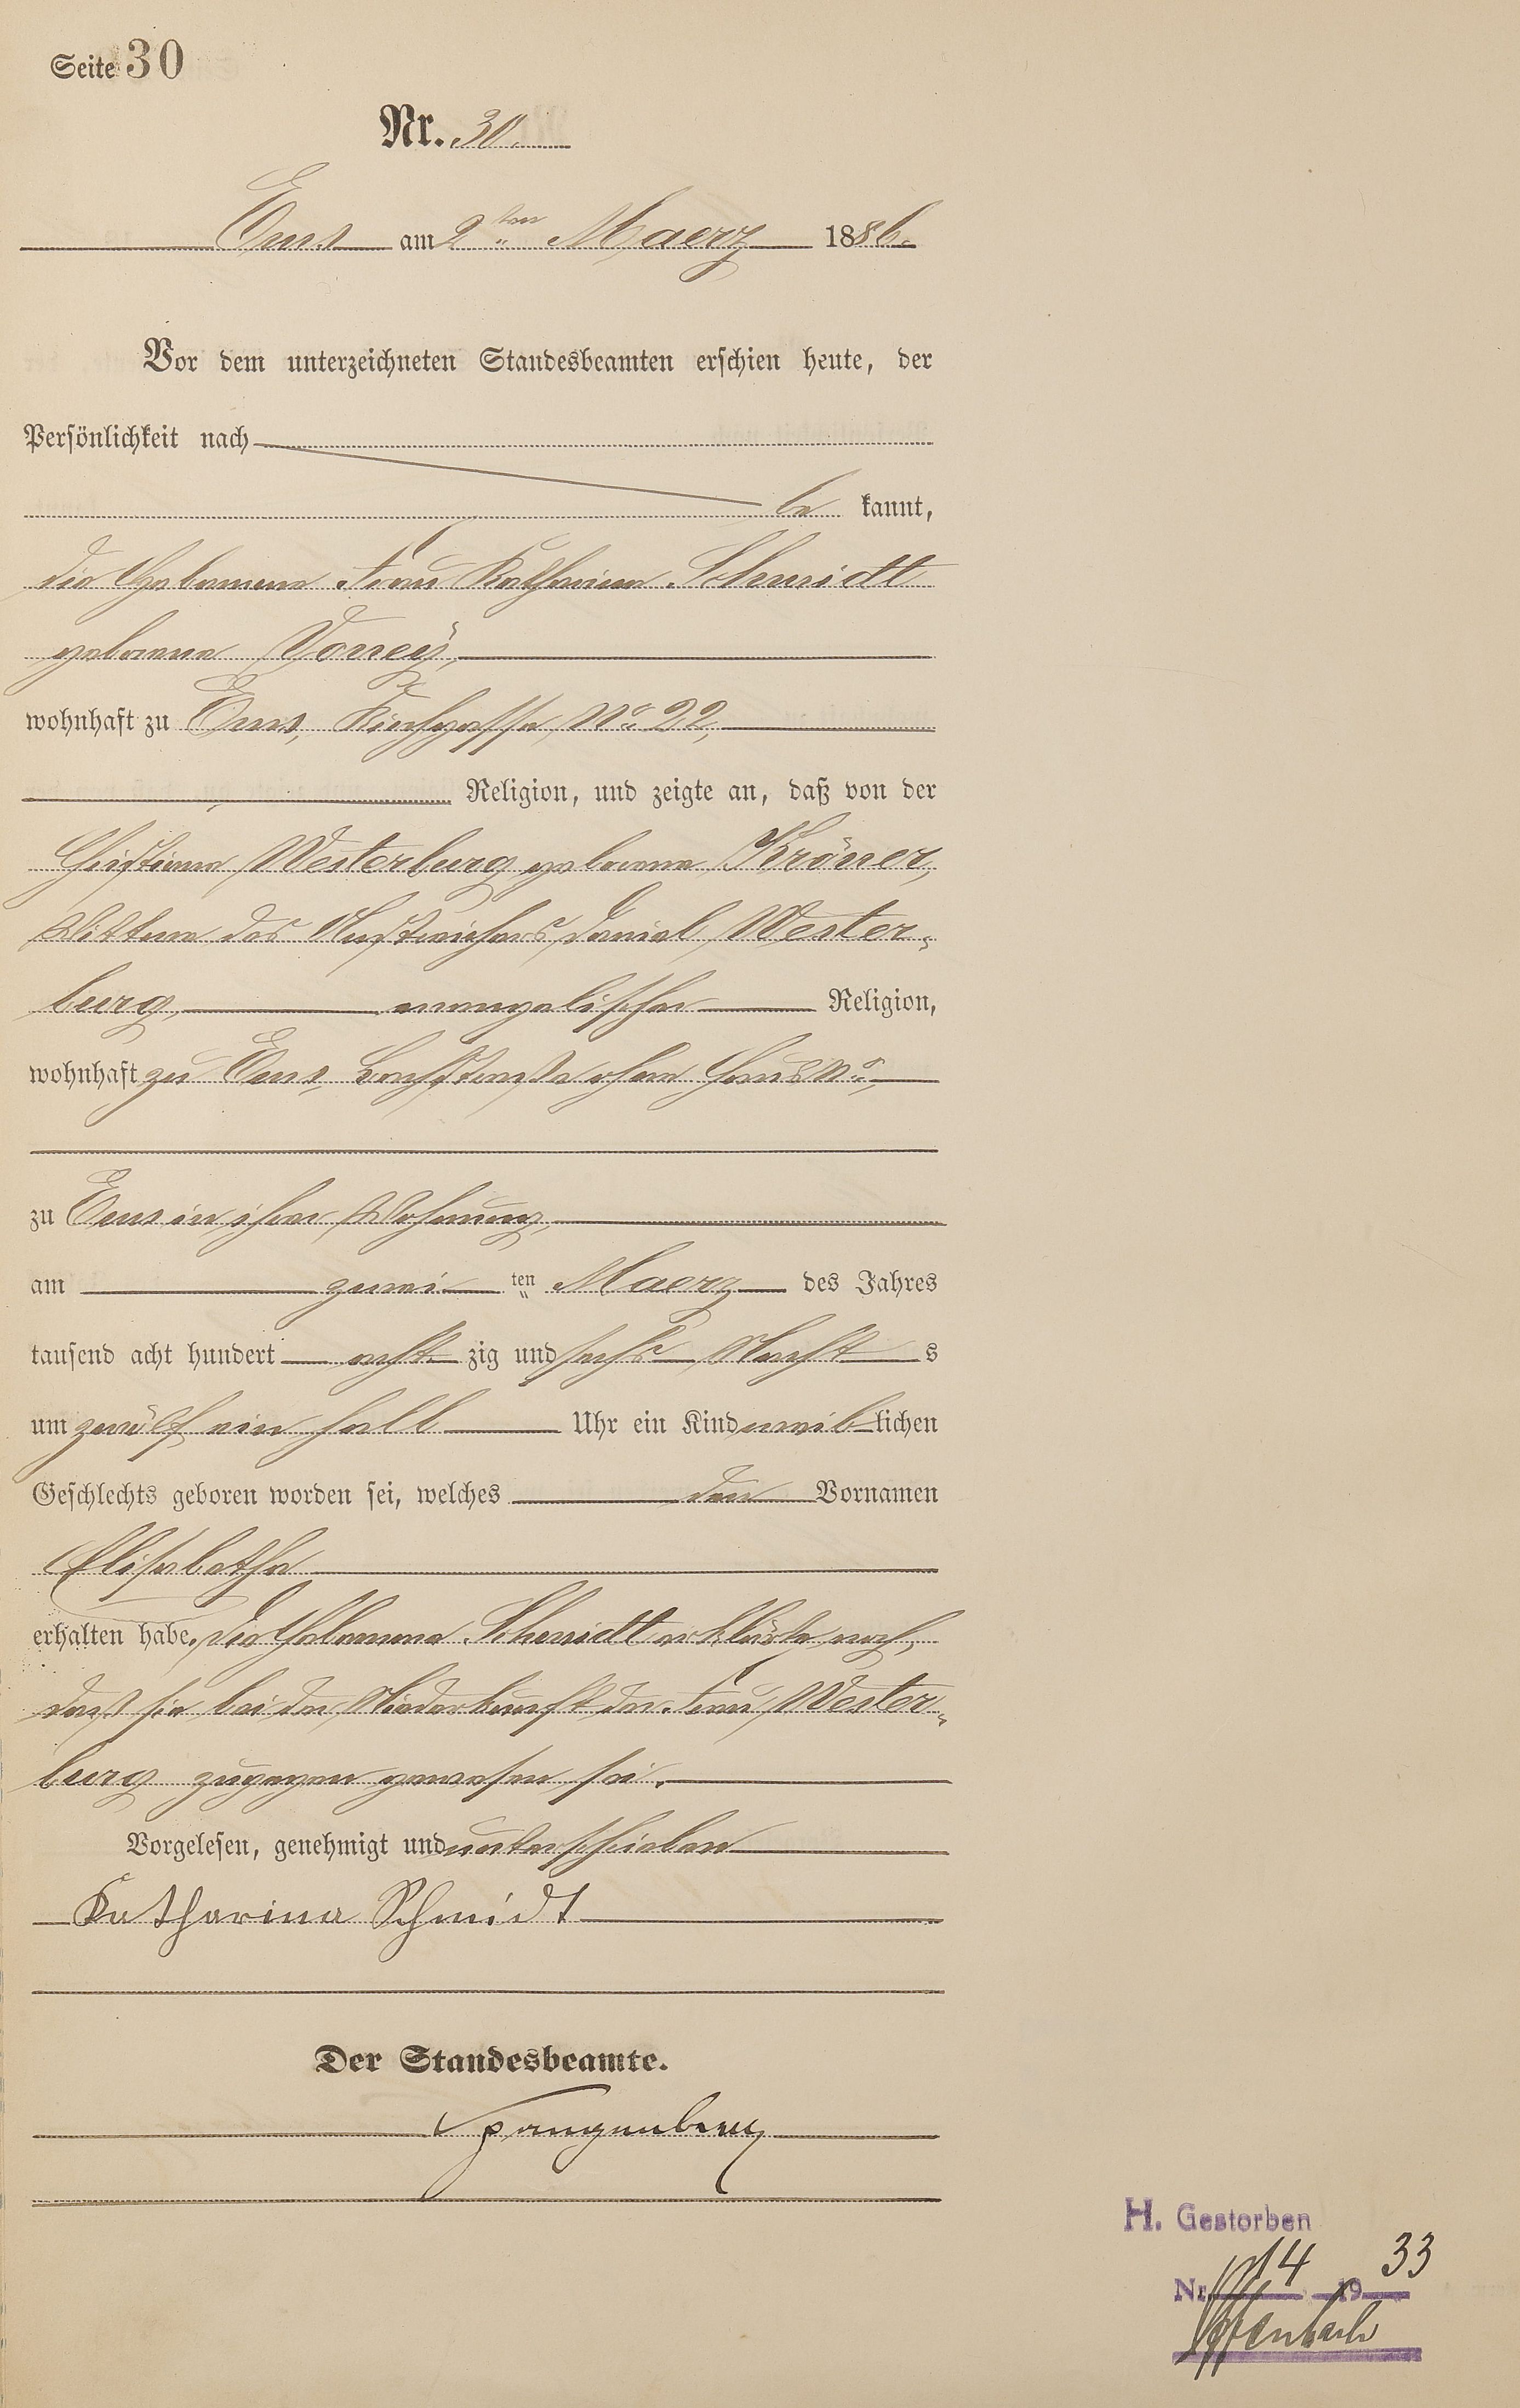 Seite 30
Nr. 30.
Ems am 2ten Maerz 1886.
Vor dem unterzeichneten Standesbeamten erschien heute, der
Persönlichkeit nach
be kannt,
die Hebamme Frau Katharina Schmidt
geborene Voneÿ,
wohnhaft zu Ems, Kirchgasse No 22,
Religion, und zeigte an, daß von der
Christiane Westerburg geborene Kröner,
Wittwe des Anstreichers Daniel Wester-
burg, evangelischer Religion,
wohnhaft zu Ems, Bachstraße ohne Haus No,
zu Ems in ihrer Wohnung,
am zwei ten Maerz des Jahres
tausend acht hundert acht zig und sechs Nacht s
um zwölf ein halb Uhr ein Kind weib lichen
Geschlechts geboren worden sei, welches den Vornamen
Elisabetha
erhalten habe. Die Hebamme Schmidt erklärte noch,
daß sie bei der Niederkunft der Frau Wester-
burg zugegen gewesen sei.
Vorgelesen, genehmigt und unterschrieben
Katharina Schmidt
Der Standesbeamte.
Spangenberg
H. Gestorben
Nr. 14 19 33
Offenbach